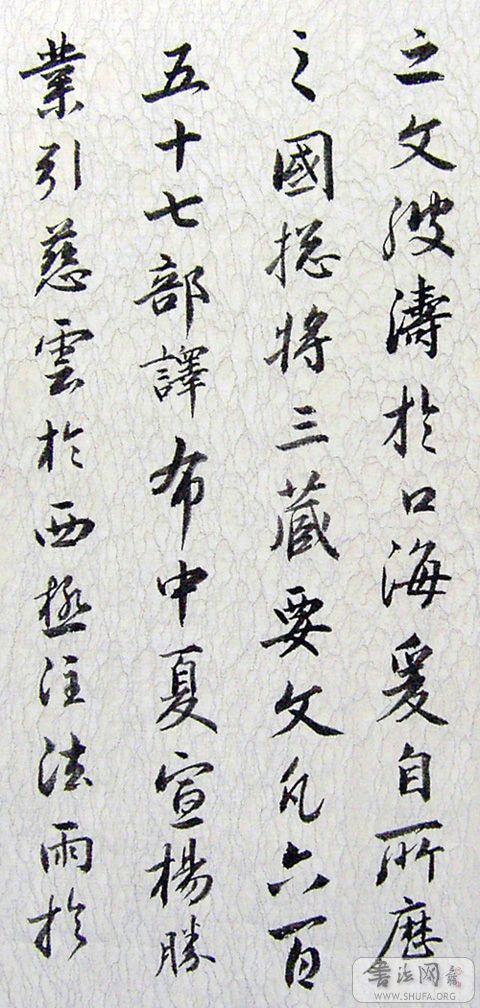 之文波濤於口海爰自所歷
之國揔將三藏要文凡六百
五十七部譯布中夏宣楊勝
業引慈雲於西極注法雨於
書法网
WWW.SHUFA.ORG